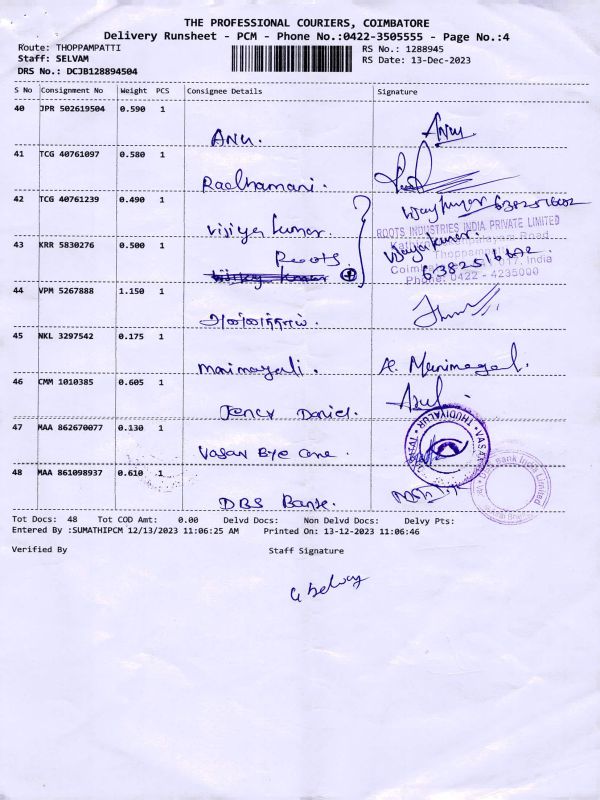 THE PROFESSIONAL COURIERS, COIMBATORE
Delivery Runsheet - PCM - Phone No.:0422-3505555 - Page No.:4
Route: THOPPAMPATTI RS No.: 1288945
Staff: SELVAM RS Date: 13-Dec-2023
DRS No.: DCJB128894504
S No Consignment No Weight PCS Consignee Details Signature
40 JPR 502619504 0.590 1
Anu. Anu
41 TCG 40761097 0.580 1
Radhamani.
42 TCG 40761239 0.490 1 Vijaykumar 6382516602
Vijiya kumar.
ROOTS INDUSTRIES INDIA PRIVATE LIMITED
43 KRR 5830276 0.500 1 Vijayakumar.
Roots. 6382516602
Phone: 0422 - 4235000
44 VPM 5267888 1.150 1
45 NKL 3297542 0.175 1
Manimagali. A. Manimagal.
46 CMM 1010385 0.605 1
Daniel.
47 MAA 862670077 0.130 1
THUDIYALUR
Vasan Eye Care.
48 MAA 861098937 0.610 1
DBS Bank.
Tot Docs: 48 Tot COD Amt: 0.00 Delvd Docs: Non Delvd Docs: Delvy Pts:
Entered By :SUMATHIPCM 12/13/2023 11:06:25 AM Printed On: 13-12-2023 11:06:46
Verified By Staff Signature